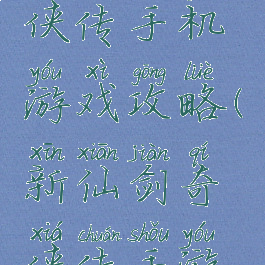 侠传手机
yóu xì gōng lüè
游戏攻略(
xīn xiān jiàn qí
新仙剑奇
xiá chuán shǒu yóu
侠传手游